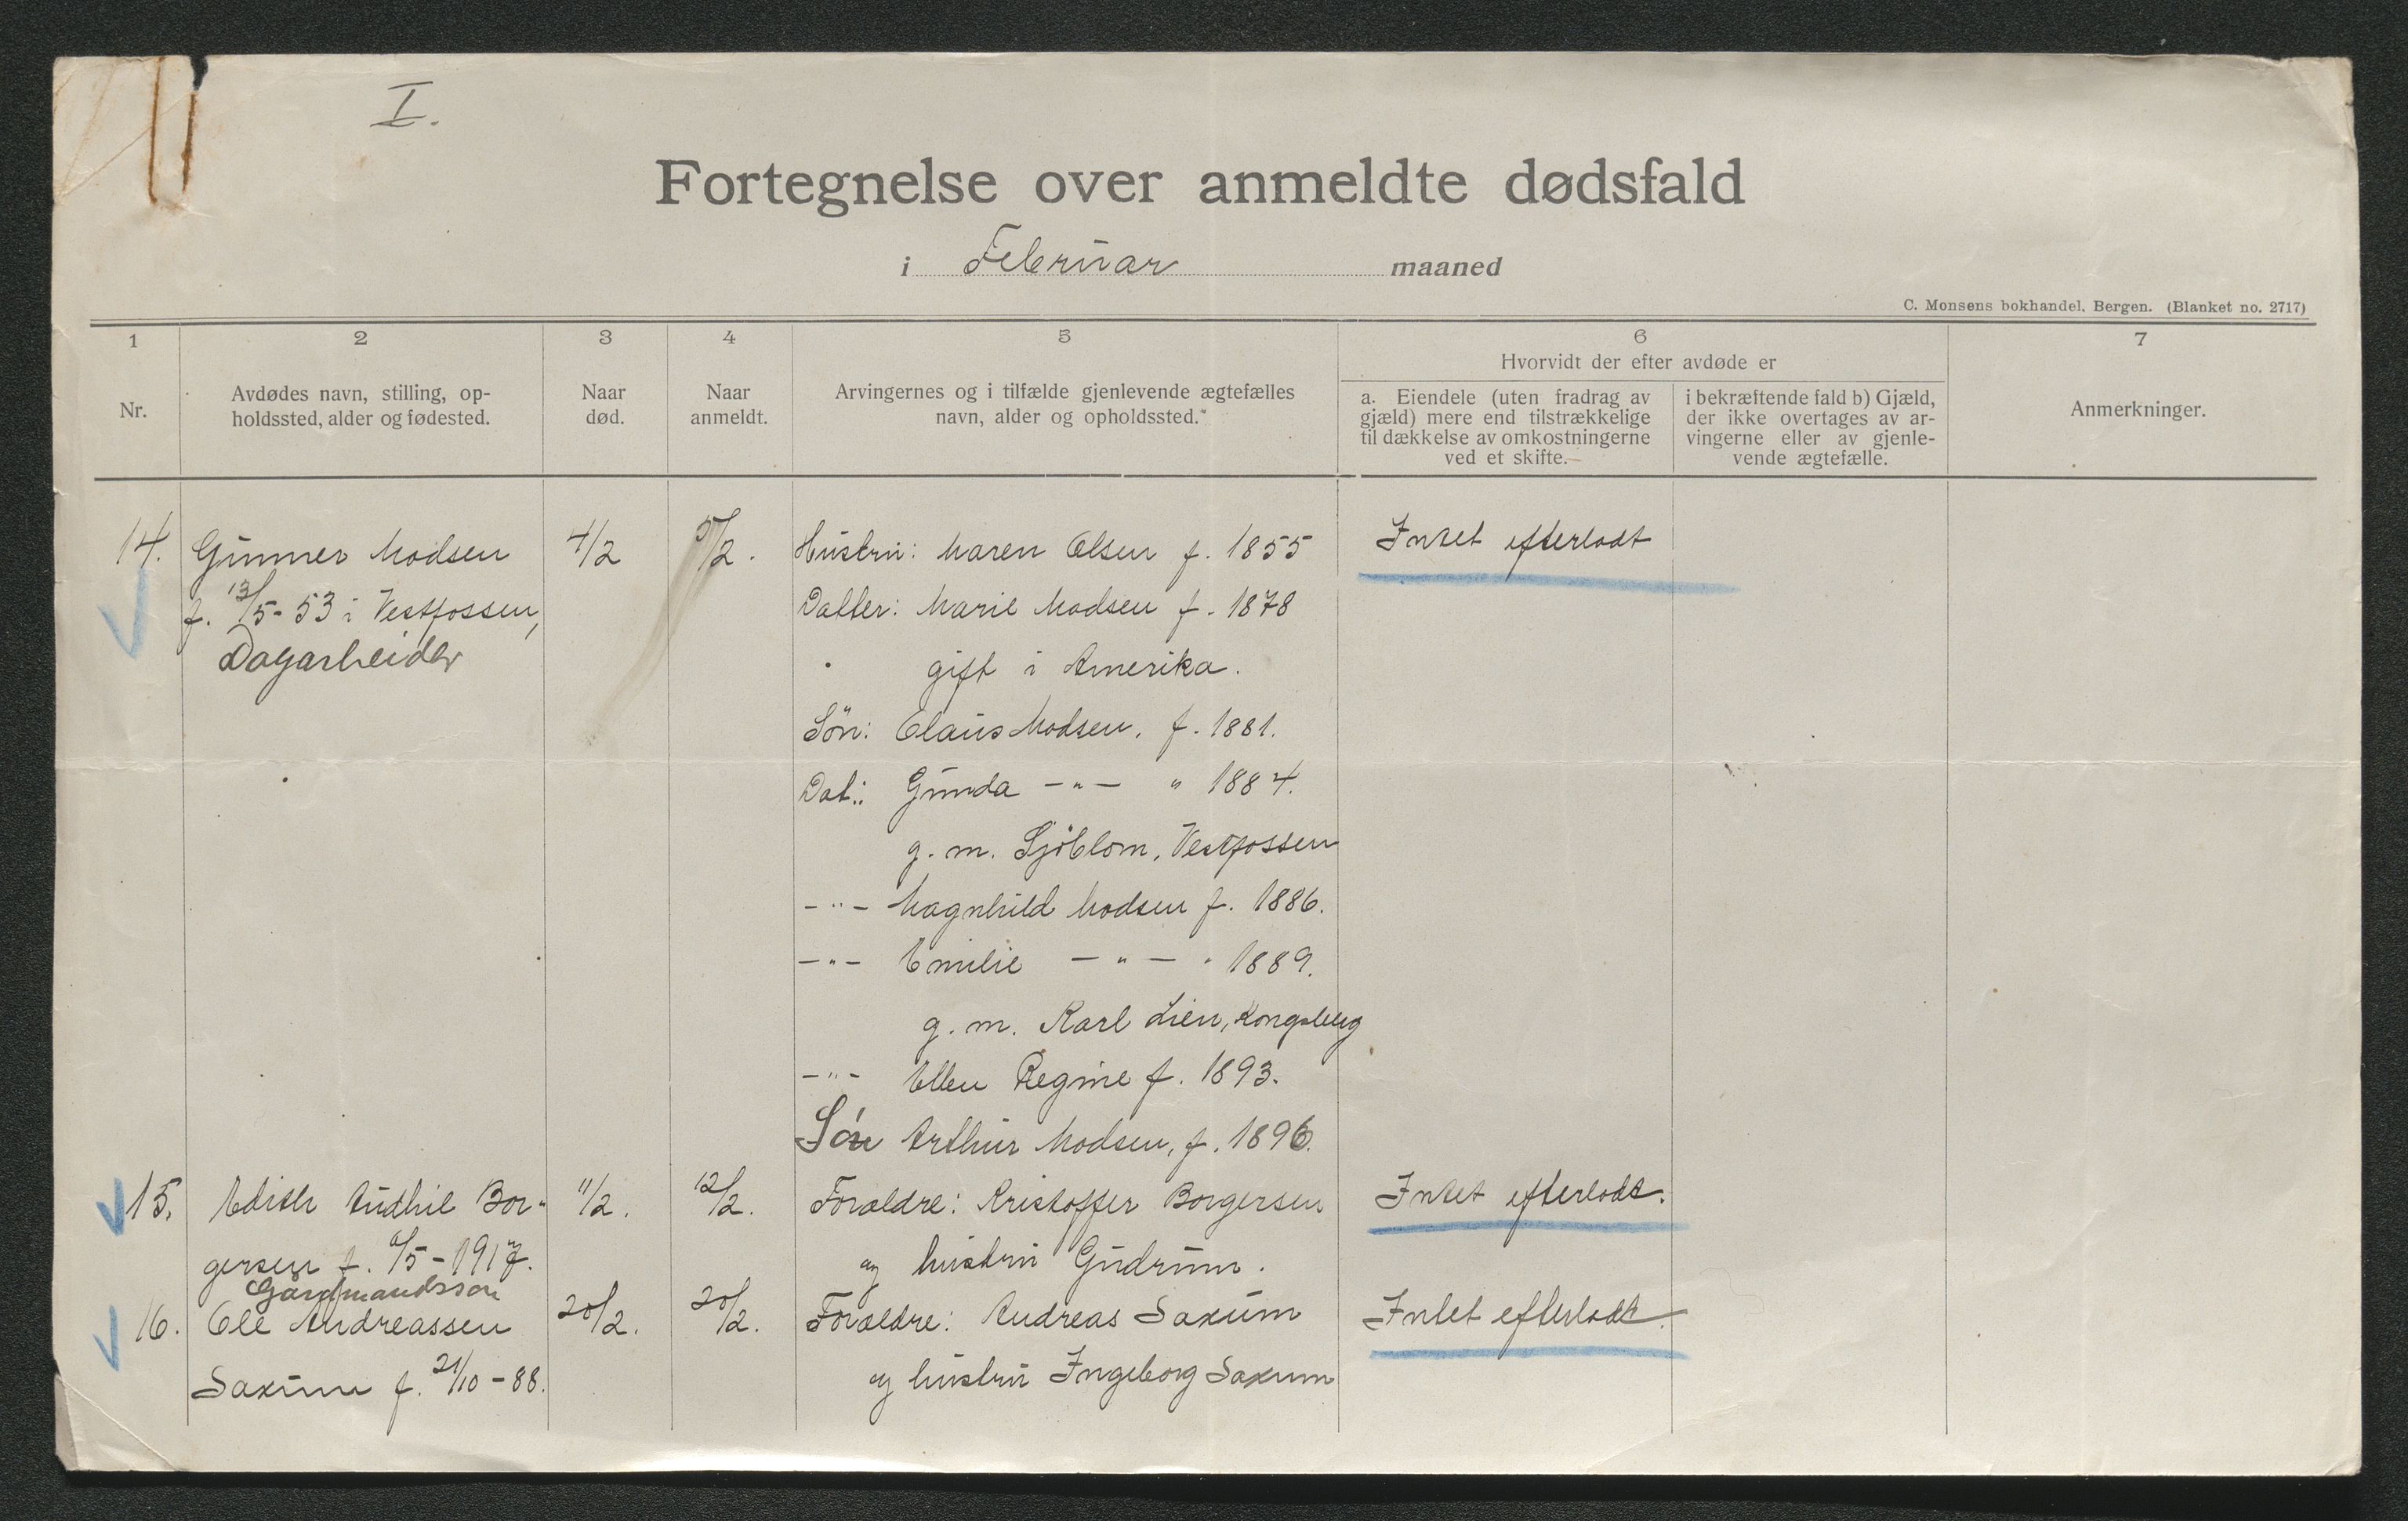 I.
Fortegnelse over anmeldte dødsfald
i Februar maaned
C. Monsens bokhandel, Bergen. (Blanket no. 2717)
1 2 3 4 5 6 7
Hvorvidt der efter avdøde er
Nr.
Avdødes navn, stilling, op-
holdssted, alder og fødested.
Naar
død.
Naar
anmeldt.
Arvingernes og i tilfælde gjenlevende ægtefælles
navn, alder og opholdssted.
a. Eiendele (uten fradrag av
gjæld) mere end tilstrækkelige
til dækkelse av omkostningerne
ved et skifte.
i bekræftende fald b) Gjæld,
der ikke overtages av ar-
vingerne eller av gjenle-
vende ægtefælle.
Anmerkninger.
14. Gunner Madsen 4/2 5/2. Hustru: Maren Olsen f. 1855 Intet efterladt
f. 13/5-53 i Vestfossen, Datter: Marie Madsen f. 1878
Dagarbeider gift i Amerika.
Søn: Claus Madsen. f. 1881.
Dat.: Gunda -"- " 1884.
g. m. Sjöblom, Vestfossen
-"- Magnhild Madsen f. 1886.
-"- Emilie -"- " 1889.
g. m. Karl Lien, Kongsberg
-"- Ellen Regine f. 1893.
Søn Arthur Madsen, f. 1896.
15. Edith Audhil Bor- 11/2. 12/2. Forældre: Kristoffer Borgersen Intet efterladt.
gersen f. /5-1917. og hustru Gudrun.
Gårdmandsson
16. Ole Andreassen 20/2. 20/2. Forældre: Andreas Saxum Intet efterladt.
Saxum f. 21/10-88. og hustru Ingeborg Saxum